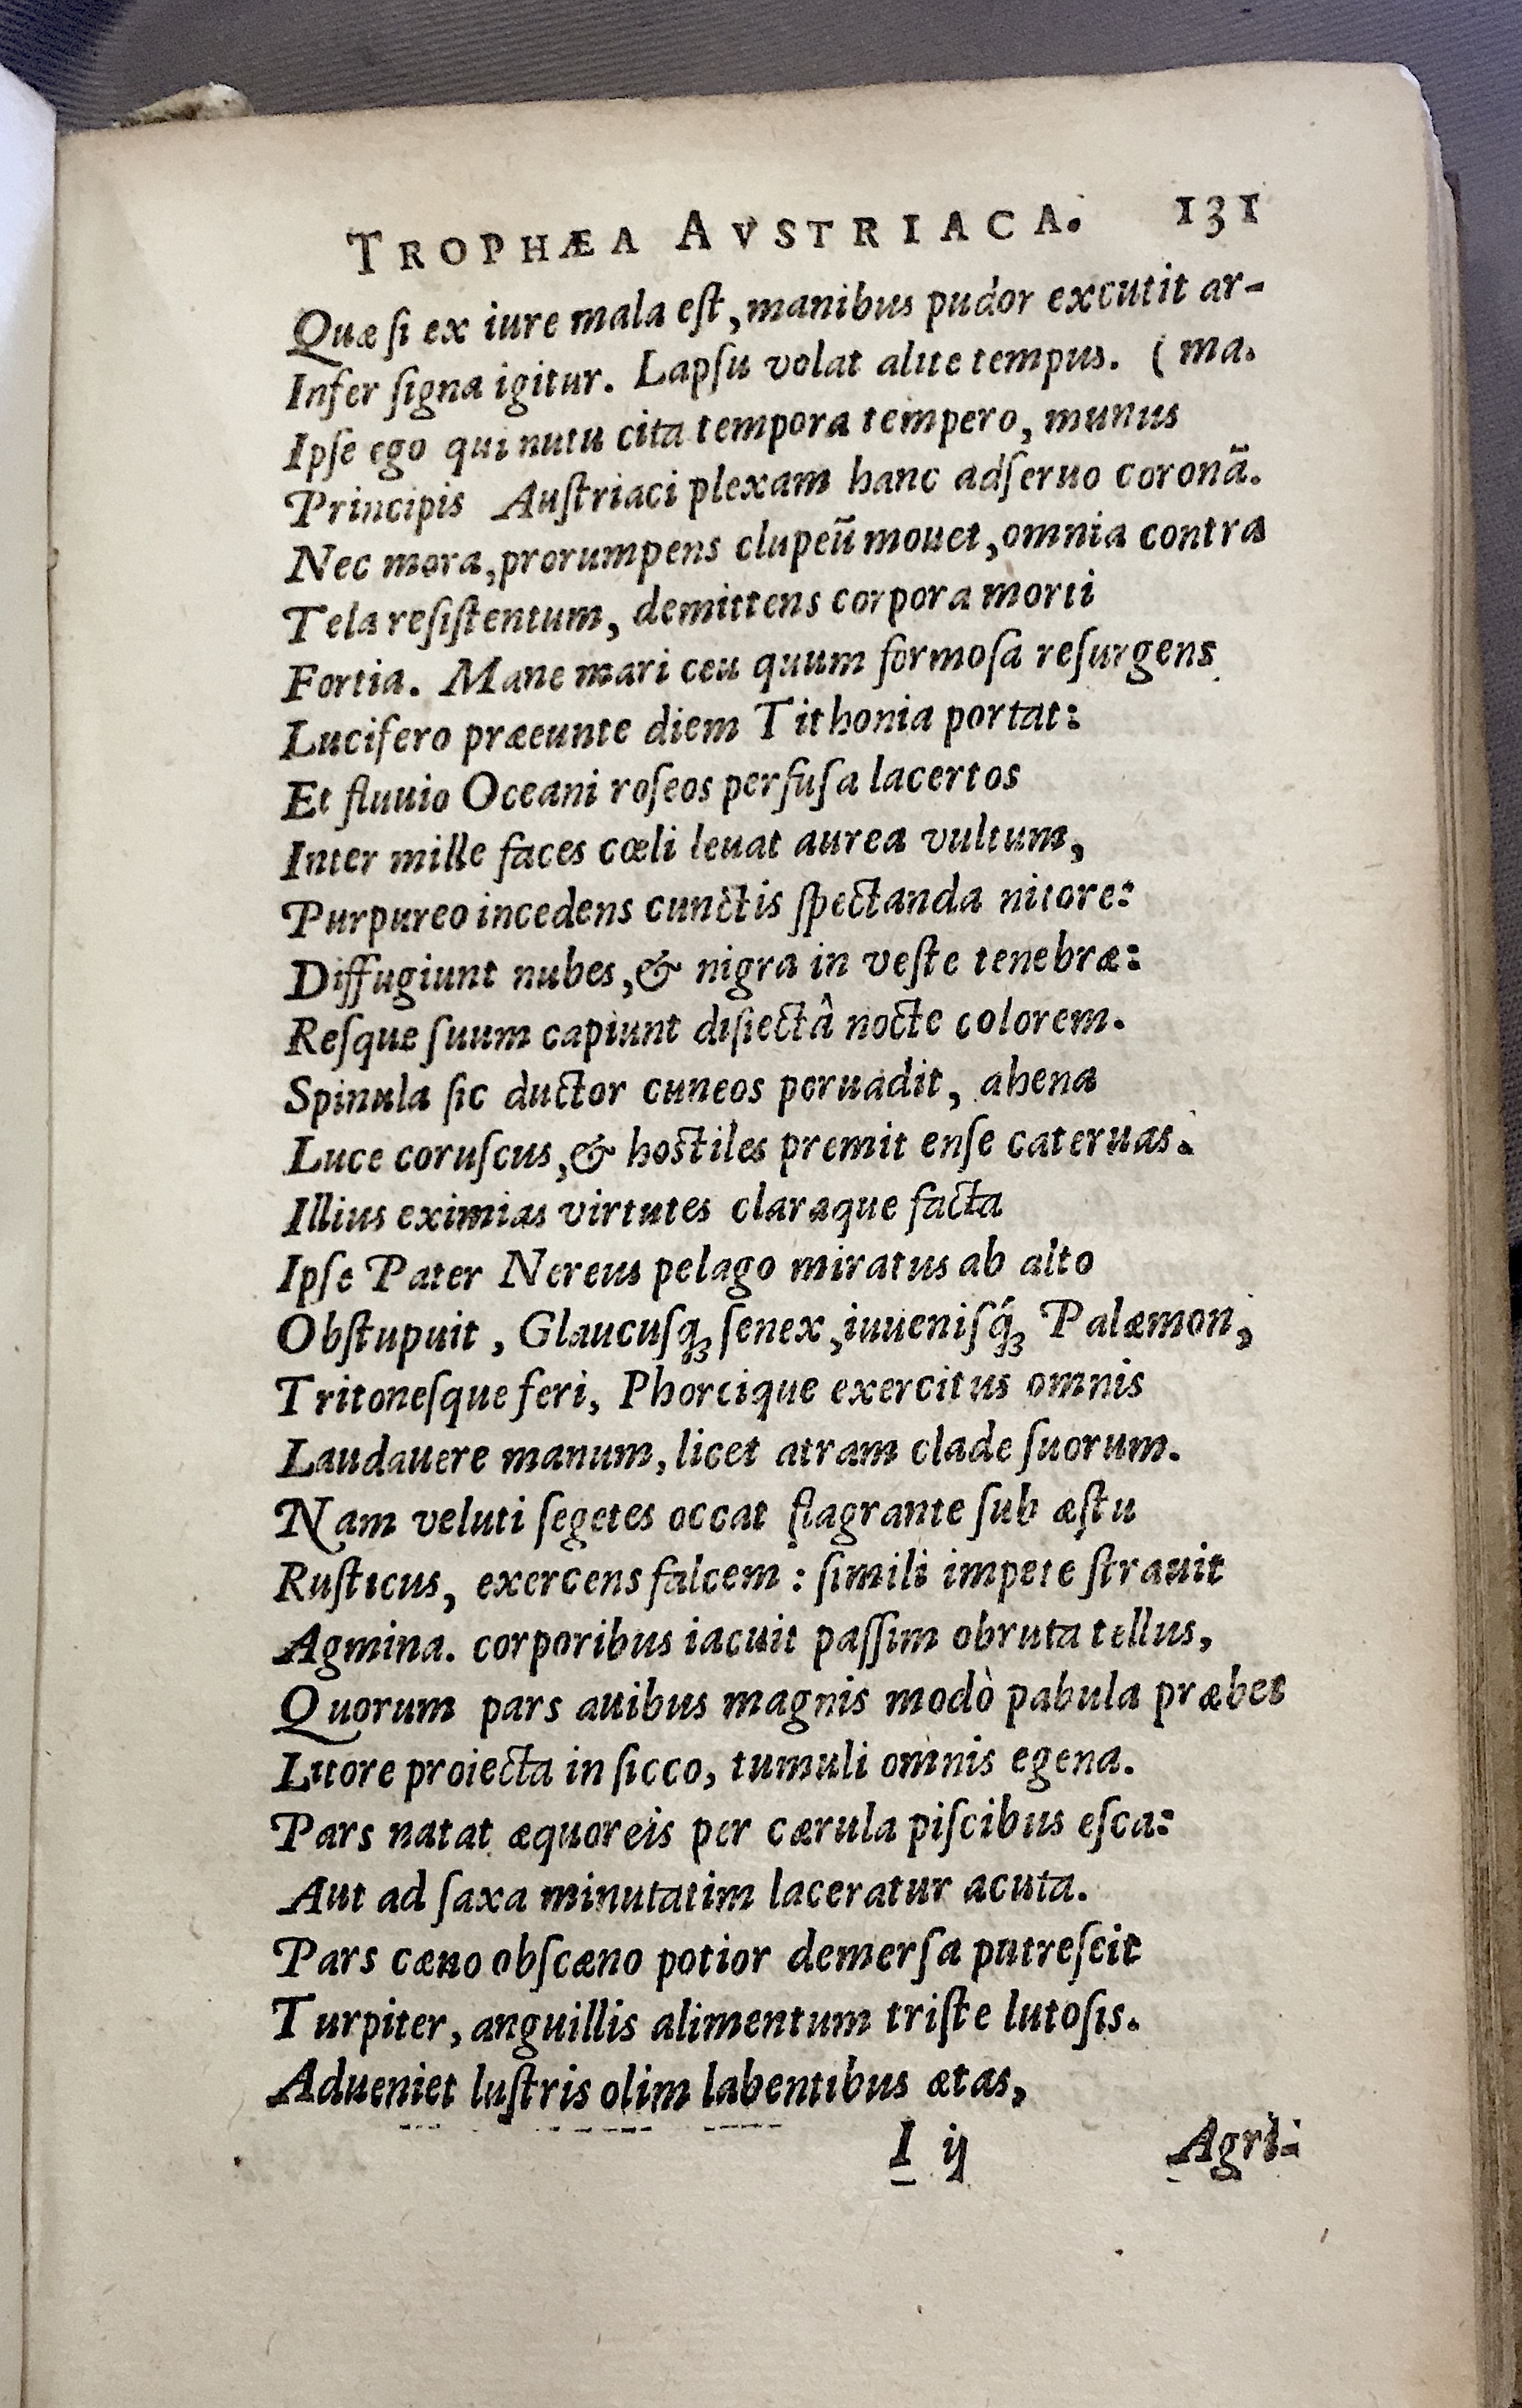 TROPHÆA AVSTRIACA. 131
Quæ ſi ex iure mala eſt, manibus pudor excutit ar-
Infer ſigna igitur. Lapſu volat alite tempus. (ma.
Ipſe ego qui nutu cita tempora tempero, munus
Principis Auſtriaci plexam hanc adſeruo coronã.
Nec mora, prorumpens clupeũ mouet, omnia contra
Tela reſiſtentum, demittens corpora morti
Fortia. Mane mari ceu quum formoſa reſurgens
Lucifero præeunte diem Tithonia portat:
Et fluuio Oceani roſeos perfuſa lacertos
Inter mille faces cœli leuat aurea vultum,
Purpureo incedens cunctis ſpectanda nitore:
Diffugiunt nubes, & nigra in veſte tenebræ:
Reſque ſuum capiunt diſiectâ nocte colorem.
Spinula ſic ductor cuneos peruadit, ahena
Luce coruſcus, & hoſtiles premit enſe cateruas.
Illius eximias virtutes claraque facta
Ipſe Pater Nereus pelago miratus ab alto
Obſtupuit, Glaucuſq; ſenex, iuueniſq́; Palæmon,
Tritoneſque feri, Phorcique exercitus omnis
Laudauere manum, licet atram clade ſuorum.
Nam veluti ſegetes occat flagrante ſub æſtu
Ruſticus, exercens falcem : ſimili impete ſtrauit
Agmina. corporibus iacuit paſſim obruta tellus,
Quorum pars auibus magnis modò pabula præbet
Litore proiecta in ſicco, tumuli omnis egena.
Pars natat æquoreis per cærula piſcibus eſca:
Aut ad ſaxa minutatim laceratur acuta.
Pars cæno obſcæno potior demerſa putreſcit
Turpiter, anguillis alimentum triſte lutoſis.
Adueniet luſtris olim labentibus ætas,
I ij Agri-